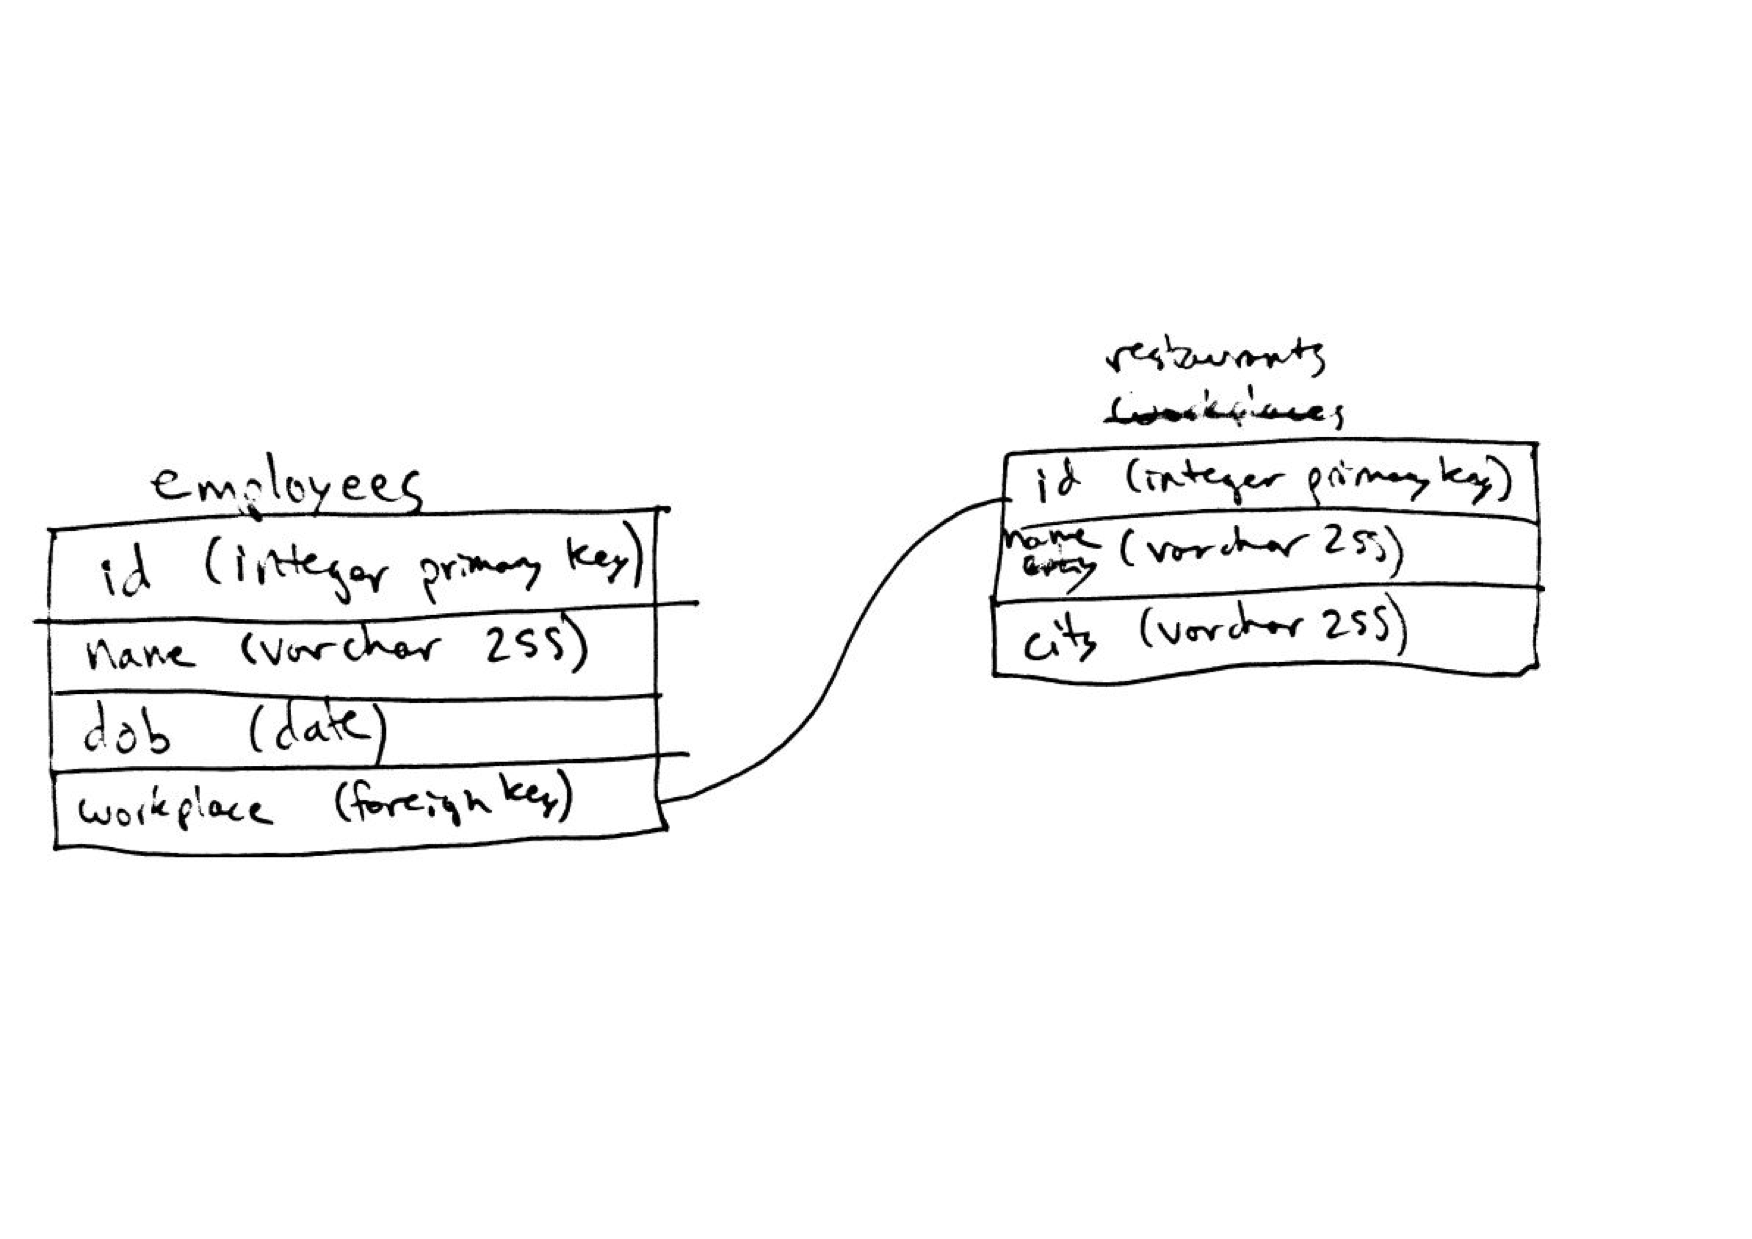 employees
id (integer primary key)
name (varchar 255)
dob (date)
workplace (foreign key)
restaurants
workplaces
id (integer primary key)
name (varchar 255)
city (varchar 255)